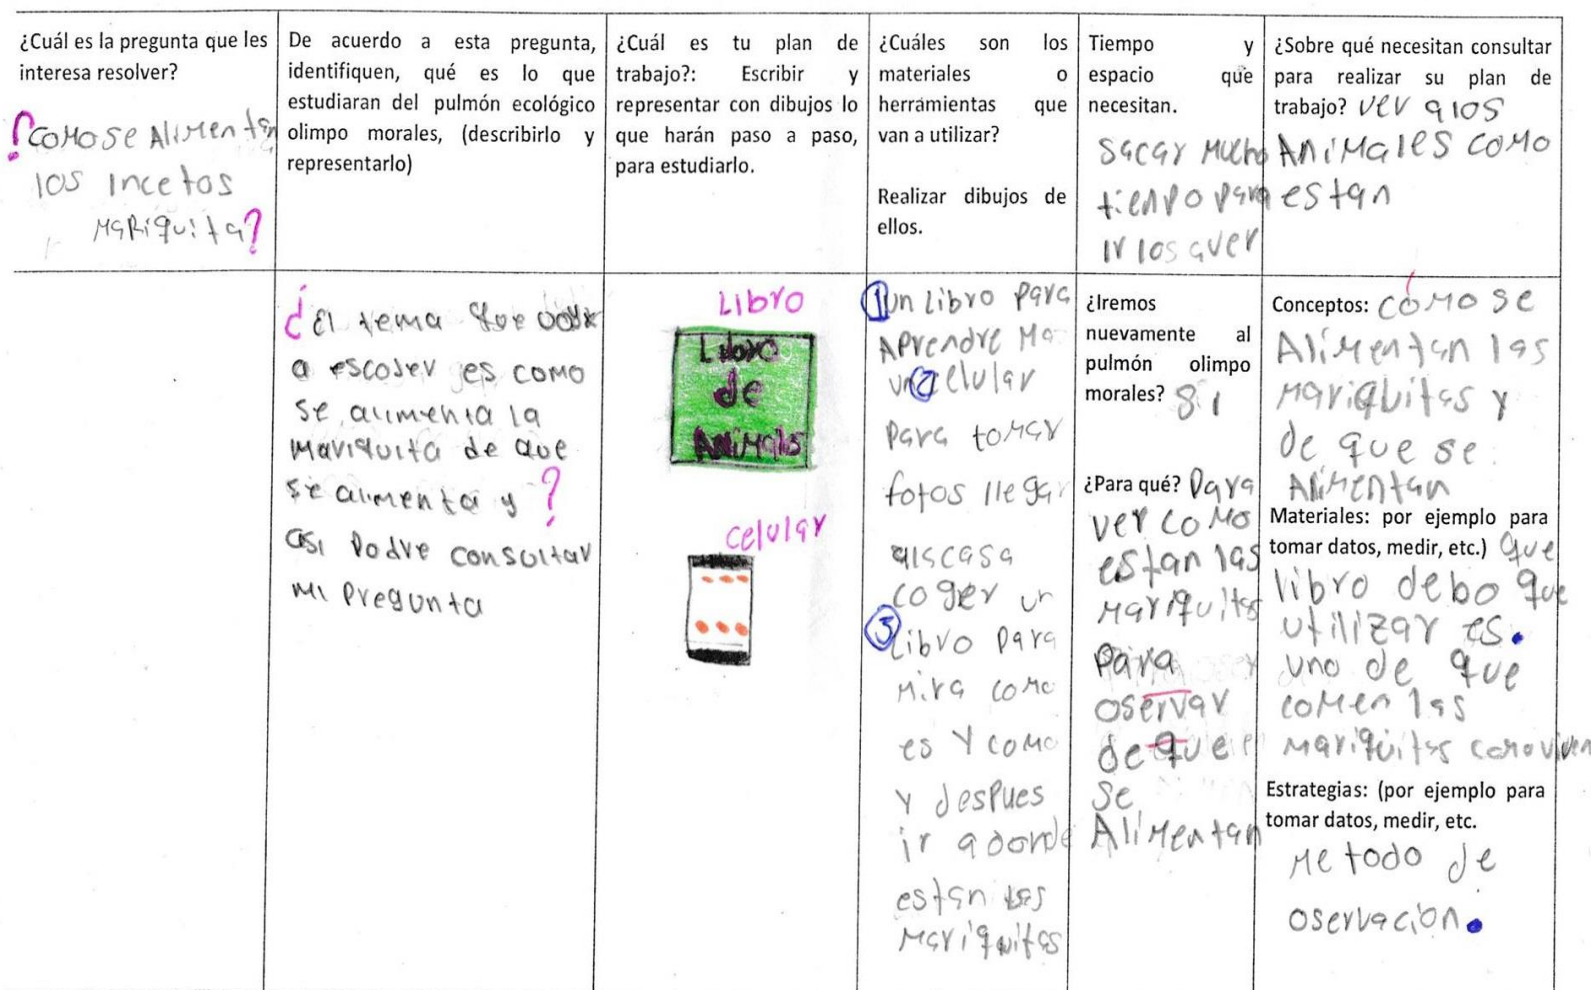 ¿Cuál es la pregunta que les
interesa resolver?
¿COMO SE AlimenTan
los incetos
MaRiquita?
De acuerdo a esta pregunta,
identifiquen, qué es lo que
estudiaran del pulmón ecológico
olimpo morales, (describirlo y
representarlo)
¿Cuál es tu plan de
trabajo?: Escribir y
representar con dibujos lo
que harán paso a paso,
para estudiarlo.
¿Cuáles son los
materiales o
herramientas que
van a utilizar?
Realizar dibujos de
ellos.
Tiempo y
espacio que
necesitan.
sacar mucho
tienpo para
ir los aver
¿Sobre qué necesitan consultar
para realizar su plan de
trabajo? ver a los
Animales como
estan
¿El tema que voy
a escojer es como
se alimenta la
mariquita de que
se alimenta y ?
asi podre consultar
mi pregunta
Libro
Libro
de
Animales
celular
1 un libro para
Aprendre
un 2 celular
para tomar
fotos llegar
a is casa
coger un
3 Libro para
mira como
es y como
y despues
ir a donde
estan las
mariquitas
¿Iremos
nuevamente al
pulmón olimpo
morales? Si
¿Para qué? para
ver como
estan las
mariquitas
para
oservar
de que
se
Alimentan
Conceptos: cómo se
Alimentan las
mariquitas y
de que se
Alimentan
Materiales: por ejemplo para
tomar datos, medir, etc.) que
libro debo que
utilizar es.
uno de que
comen las
mariquitas como viven
Estrategias: (por ejemplo para
tomar datos, medir, etc.
metodo de
oservacion.